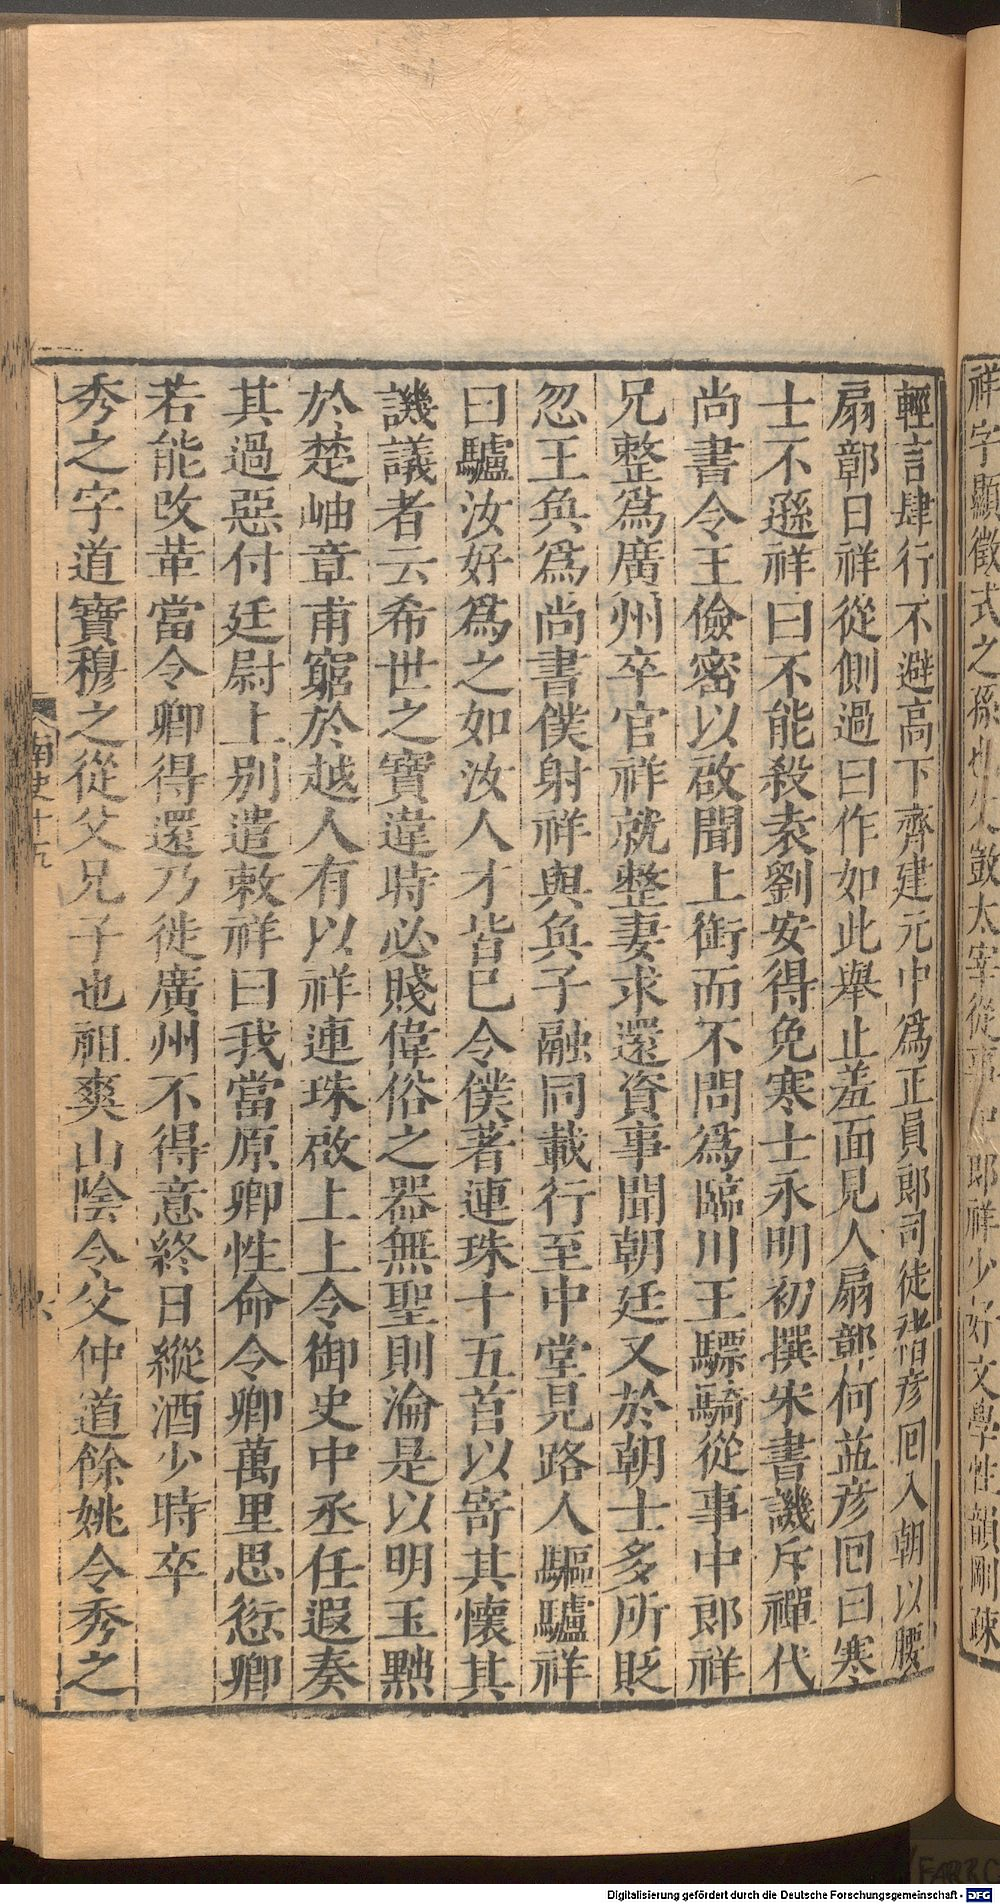 祥字顯徵式之孫也父敳太宰從事中郎祥少好文學性韻剛疎
輕言肆行不避高下齊建元中爲正員郎司徒褚彥囘入朝以腰
扇鄣日祥從側過曰作如此舉止羞面見人扇鄣何益彥囘曰寒
士不遜祥曰不能殺袁劉安得免寒士永明初撰宋書譏斥禪代
尚書令王儉密以啟聞上銜而不問爲臨川王驃騎從事中郎祥
兄整爲廣州卒官祥就整妻求還資事聞朝廷又於朝士多所貶
忽王奐爲尚書僕射祥與奐子融同載行至中堂見路人驅驢祥
曰驢汝好爲之如汝人才皆巳令僕著連珠十五首以寄其懷其
譏議者云希世之寶違時必賤偉俗之器無聖則淪是以明玉黜
於楚岫章甫窮於越人有以祥連珠啟上上令御史中丞任遐奏
其過惡付廷尉上別遣敕祥曰我當原卿性命令卿萬里思愆卿
若能改革當令卿得還乃徙廣州不得意終日縱酒少時卒
秀之字道寶穆之從父兄子也祖爽山陰令父仲道餘姚令秀之
南史十九
Digitalisierung gefördert durch die Deutsche Forschungsgemeinschaft - DFG